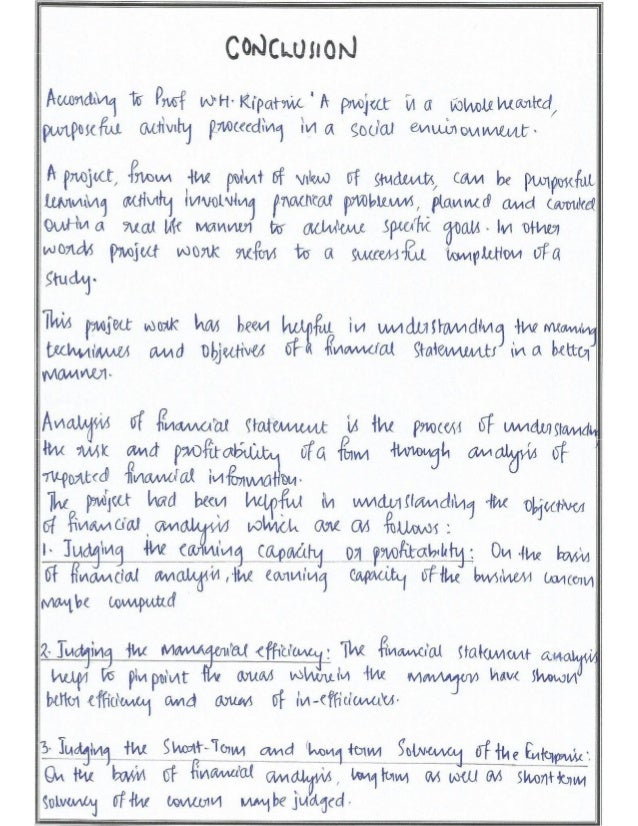 CONCLUSION
According to Prof W.H. Kipatric 'A project is a wholehearted,
purposeful activity proceeding in a social environment.
A project, from the point of view of students, can be purposeful
learning activity involving practical problems, planned and carried
out in a real life manner to achieve specific goals. In other
words project work refers to a successful completion of a
study.
This project work has been helpful in understanding the meaning
techniques and objectives of a financial statements in a better
manner.
Analysis of financial statement is the process of understanding
the risk and profitability of a form through analysis of
reported financial information.
The project had been helpful in understanding the objectives
of financial analysis which are as follows :
1. Judging the earning capacity or profitability: On the basis
of financial analysis, the earning capacity of the business concern
maybe computed
2. Judging the managerial efficiency: The financial statement analysis
helps to pin point the areas wherein the managers have shown
better efficiency and areas of in-efficiencies.
3. Judging the Short-Term and Long term Solvency of the Enterprise:
On the basis of financial analysis, long term as well as short term
solvency of the concern maybe judged.